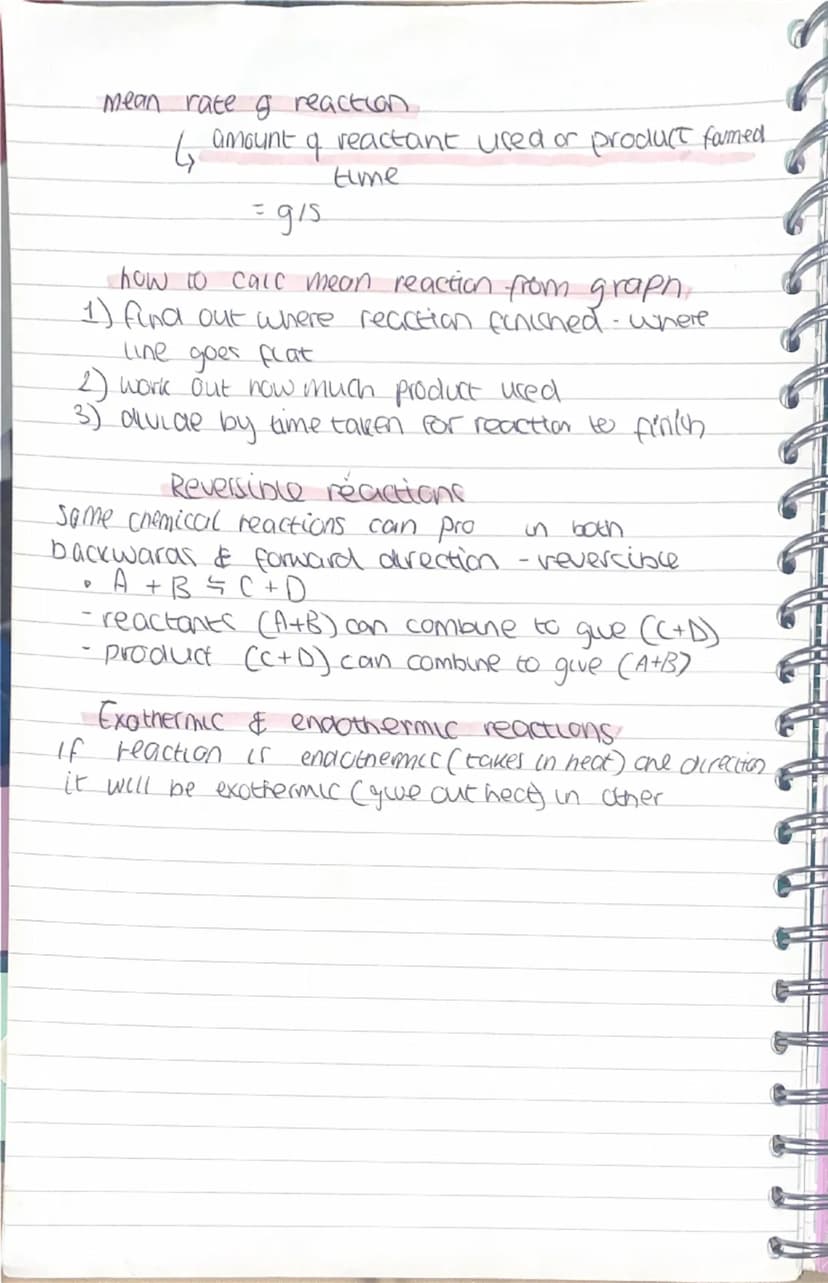 mean rate of reaction
↳ amount of reactant used or product formed
time
= g/s
how to calc mean reaction from graph
1) find out where reaction finished - where
line goes flat
2) work out how much product used
3) divide by time taken for reaction to finish
Reversible reactions
Some chemical reactions can pro in both
backwards & forward direction - reversible
• A + B ⇋ C + D
- reactants (A+B) can combine to give (C+D)
- product (C+D) can combine to give (A+B)
Exothermic & endothermic reactions
if reaction is endothermic (takes in heat) one direction
it will be exothermic (give out heat) in other